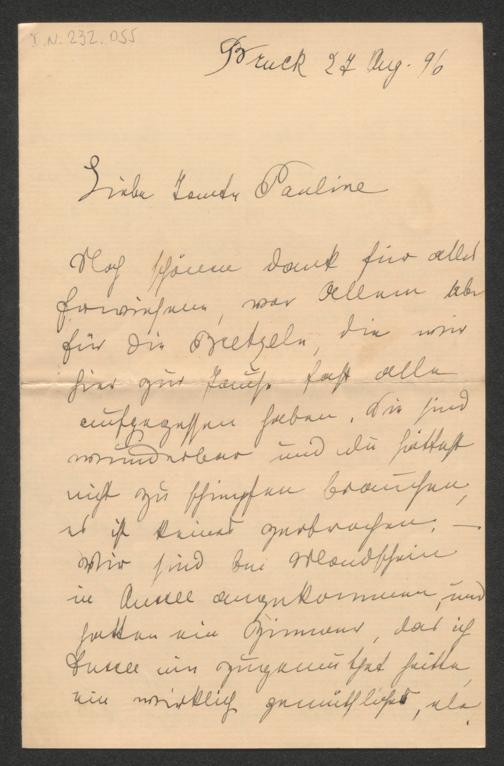 I.N. 232.055
Bruck 27 Aug. 96
Liebe Tante Pauline
Noch schönen Dank für alles
Erwiesene, vor allem aber
für die Bretzeln, die wir
hier zur Jause fast alle
aufgegessen haben. Sie sind
wunderbar und du hättest
nicht zu schimpfen brauchen,
es ist keines zerbrochen. —
Wir sind bei Mondschein
in Aussee angekommen, und
hatten ein Zimmer, das ich
Aussee nie zugemuthet hätte,
ein wirklich gemüthliches, als